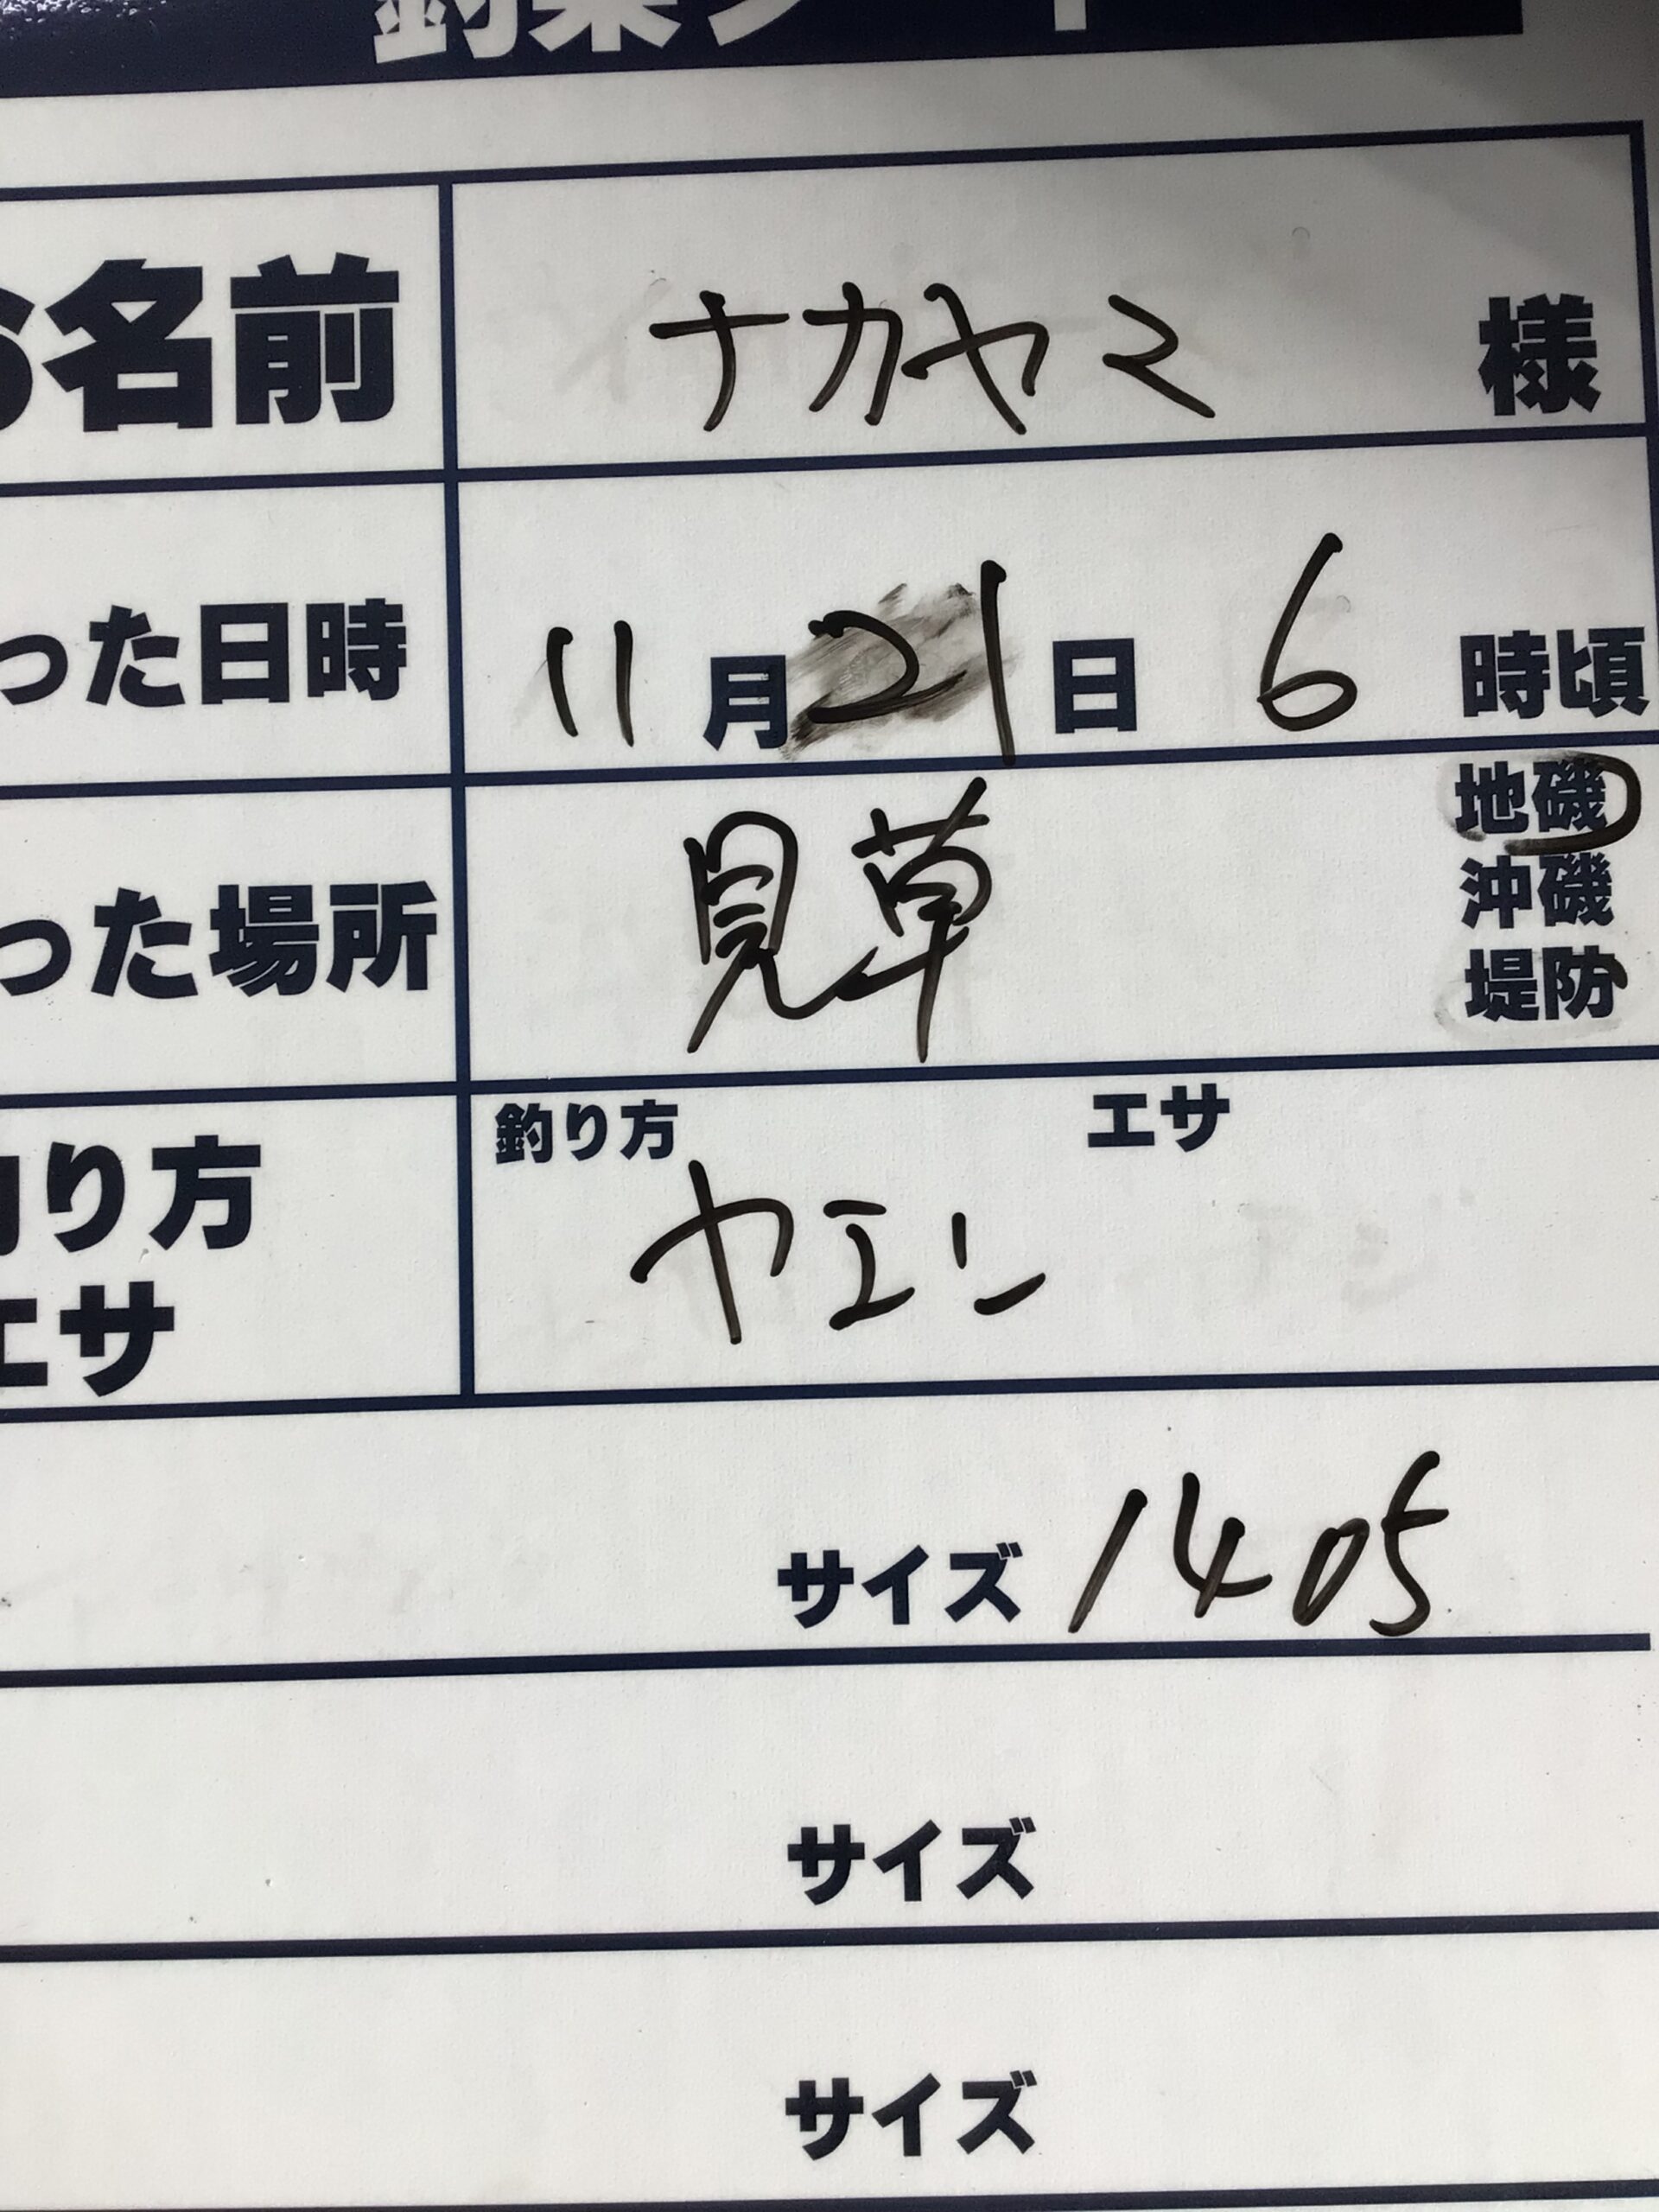 釣果シート
お名前 ナカヤマ 様
った日時 11月21日 6時頃
った場所 見草 地磯
沖磯
堤防
釣り方 釣り方 エサ
エサ ヤエン
サイズ 1405
サイズ
サイズ